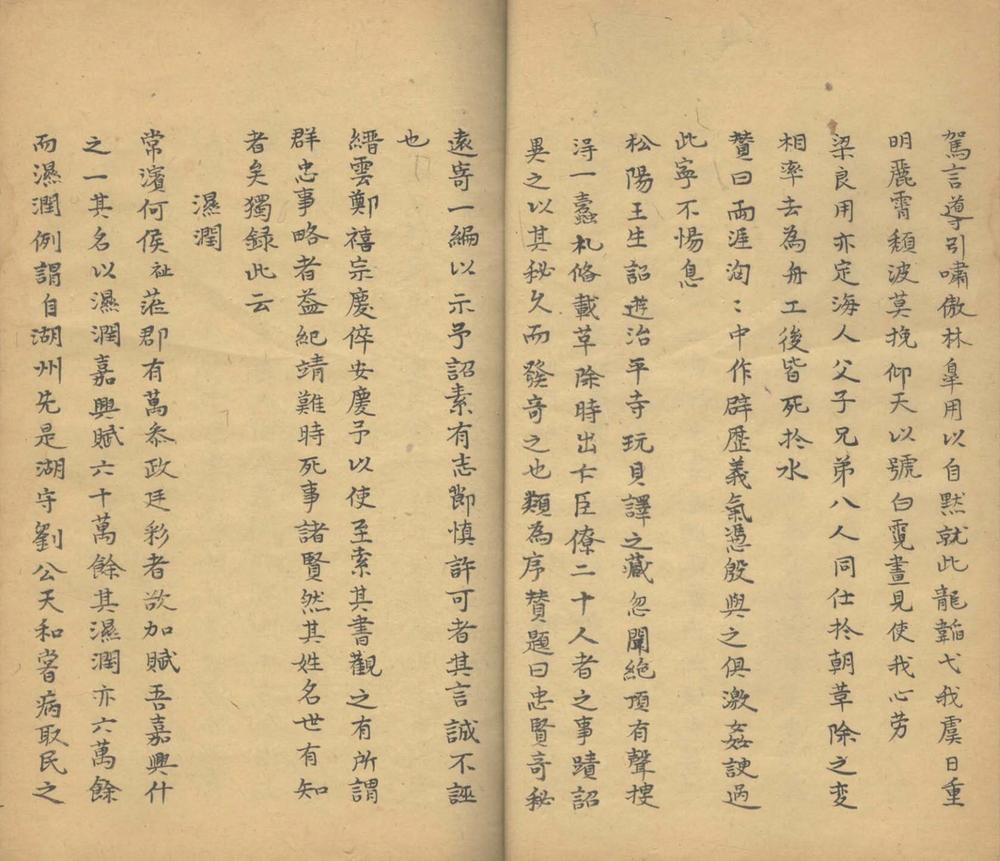 駕言導引嘯傲林臯用以自黙就此龍韜弋我虞日重
明麗霄頹波莫挽仰天以號白霓晝見使我心劳
梁良用亦定海人父子兄弟八人同仕扵朝草除之变
相率去為舟工後皆死扵水
賛曰兩涯洶〻中作辟歷義氣憑殷與之俱激姦諛過
此寧不惕息
松陽王生詔遊治平寺玩貝譯之藏忽聞絶頂有聲摟
淂一蠧札俻載草除時出亡臣僚二十人者之事蹟詔
異之以其秘久而發奇之也類為序賛題曰忠賢奇秘
遠寄一編以示予詔素有志節慎許可者其言誠不誣
也
縉雲鄭禧宗慶倅安慶予以使至索其書觀之有所謂
群忠事略者葢紀靖難時死事諸賢然其姓名世有知
者矣獨録此云
濕潤
常濱何侯祉涖郡有萬叅政廷彩者欲加賦吾嘉興什
之一其名以濕潤嘉興賦六十萬餘其濕潤亦六萬餘
而濕潤例謂自湖州先是湖守劉公天和嘗病取民之